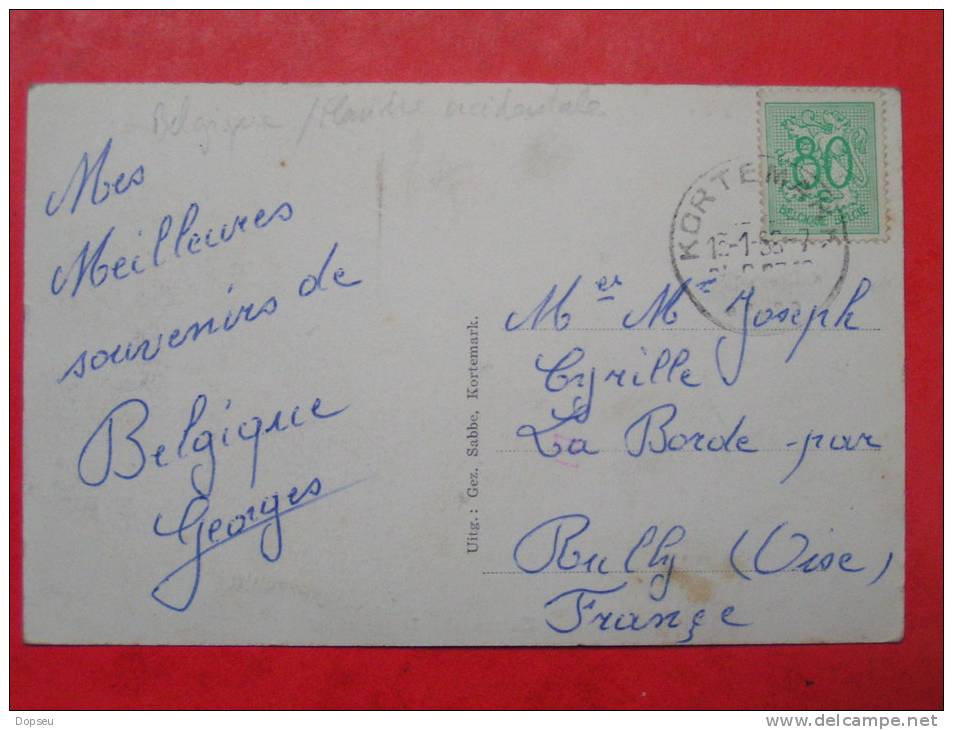 Belgique / Flandre occidentale
Mes
Meilleures
souvenirs de
Belgique
Georges
Uitg.: Gez. Sabbe, Kortemark.
80
BELGIQUE BELGIË
KORTEMARK
Mer Mr Joseph
Cyrille
La Borde-par
Rully (Oise)
France
Dopseu
www.delcampe.net